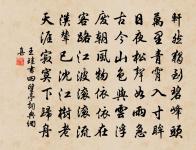 軒然獨刮碧峰頭
萬里青霄入寸眸
日夜松聲如雨急
古今山色與雲浮
度朝風物依依在
客路江波滾滾流
漢輦已沈江樹老
天涯寂寞下歸舟
王珪書四望亭詞典網